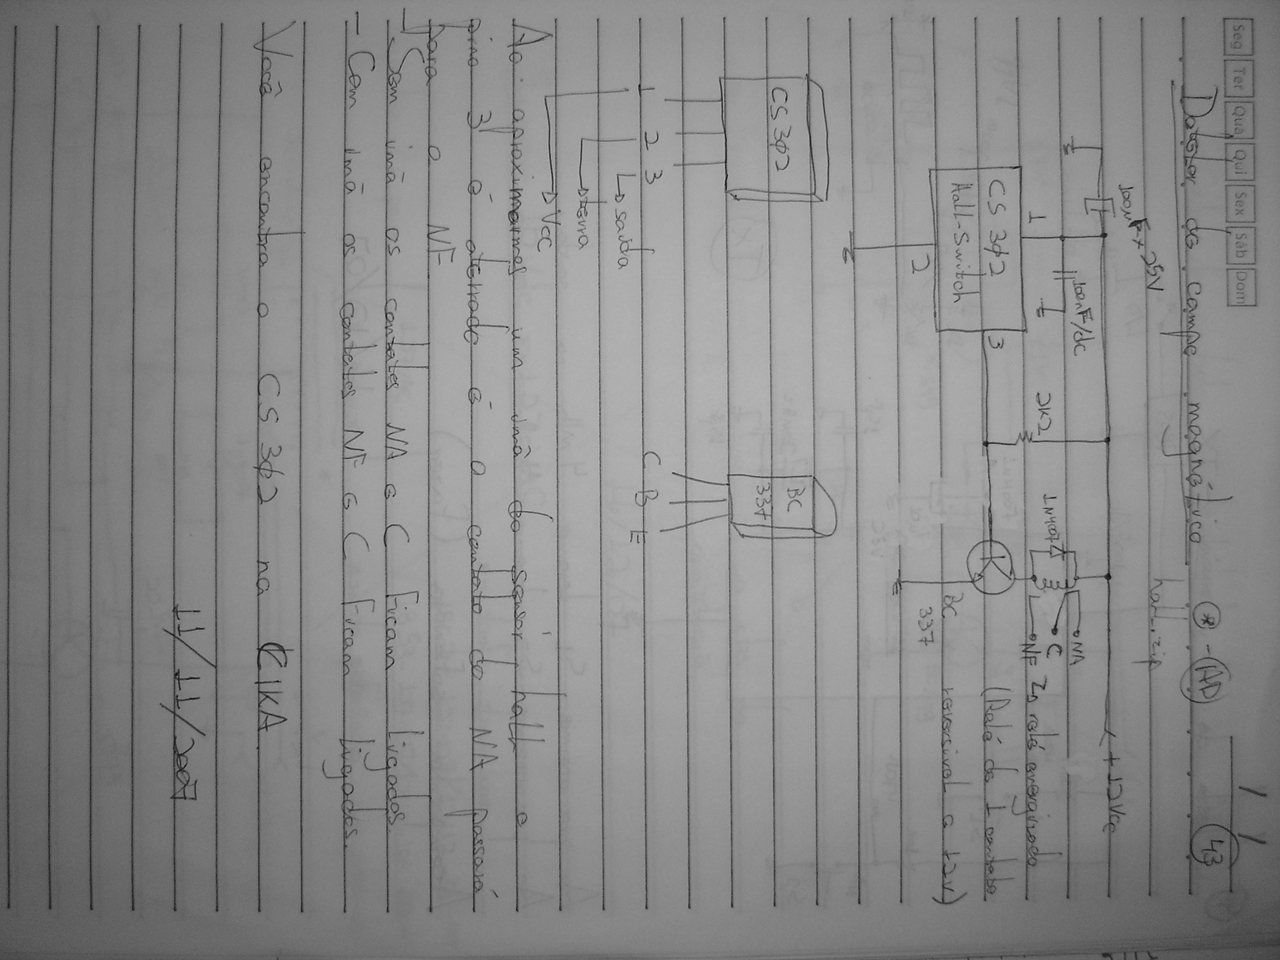 Seg Ter Qua Qui Sex Sáb Dom
/ /
43
Detetor de campo magnético * - AD
hall.zip
100nF x 25V
100nF/dc
+12Vcc
2K2
1N4007
NA
C
NF
relé energizado
(Relé de 1 contato
reversível e 12V)
1
CS 3ϕ2
Hall-Switch
3
2
BC
337
CS 3ϕ2
BC
337
1 2 3
C B E
saída
terra
Vcc
Ao aproximarmos um imã do sensor hall o
pino 3 é aterrado e o contato do NA passará
para o NF
- Sem imã os contatos NA e C ficam ligados.
- Com imã os contatos NF e C ficam ligados.
Você encontra o CS 3ϕ2 na CIKA.
11/11/2007